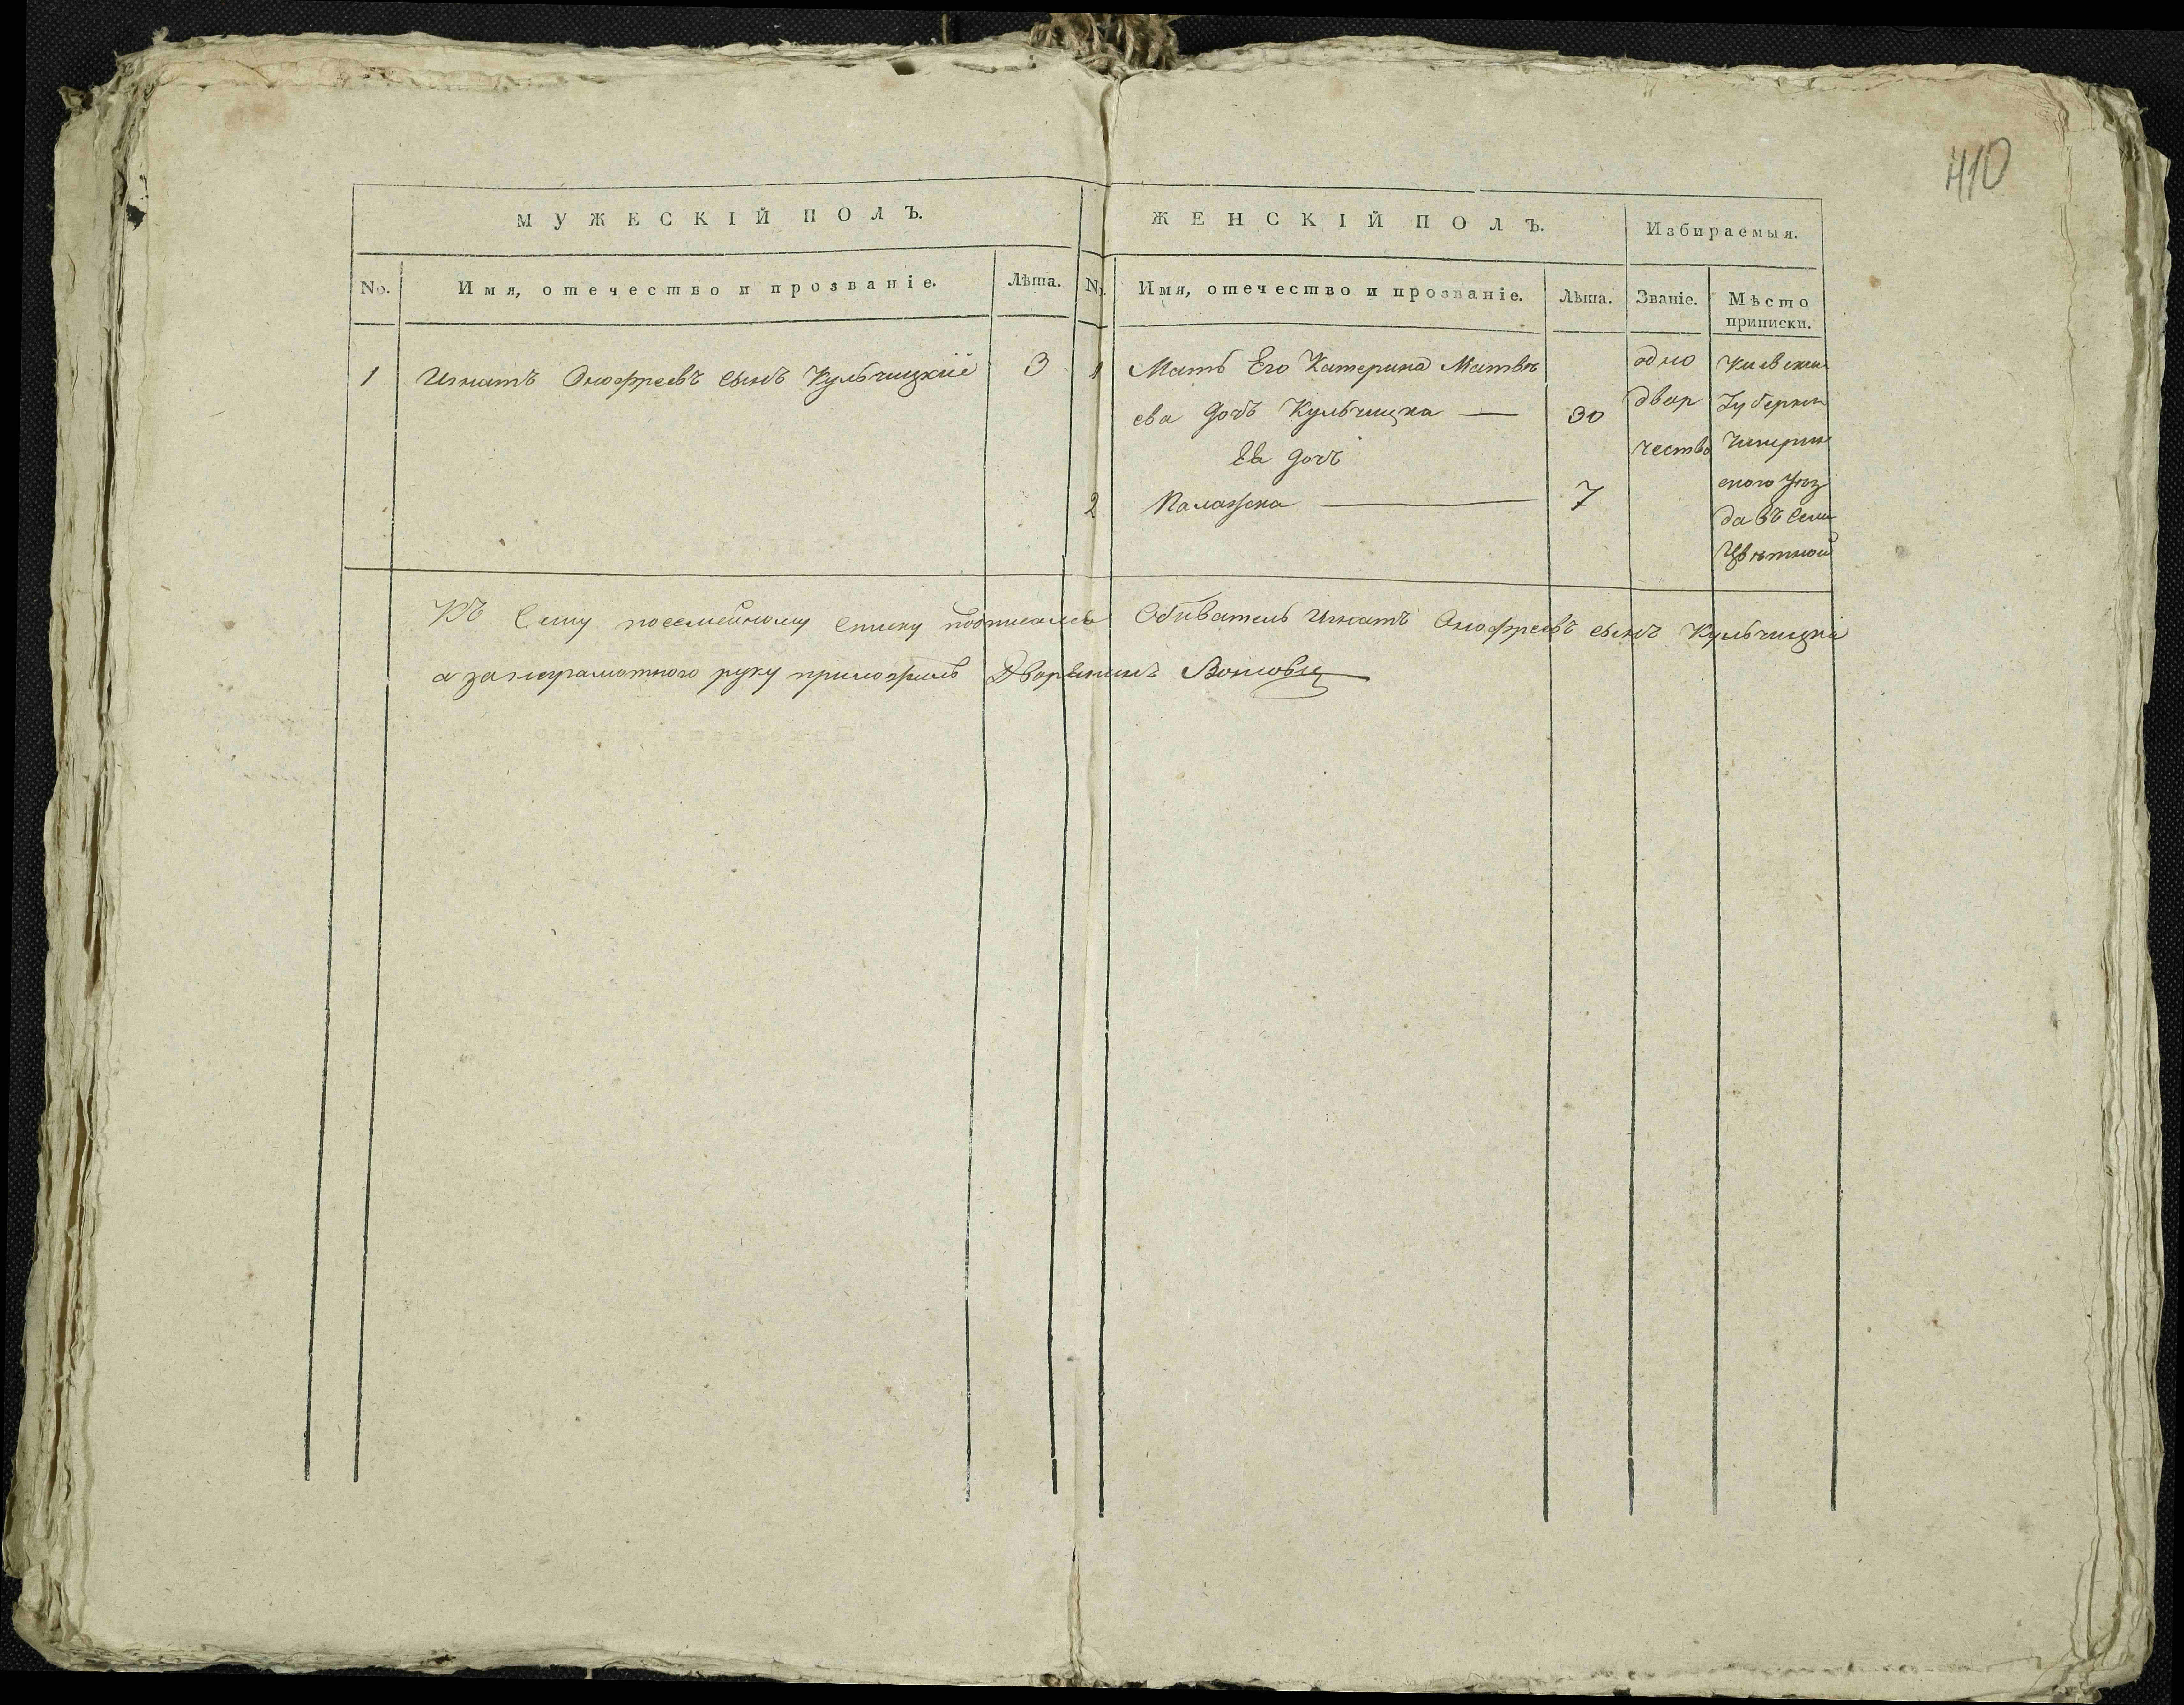 410
МУЖЕСКІЙ ПОЛЪ.
ЖЕНСКІЙ ПОЛЪ.
Избираемыя.
No.
Имя, отечество и прозваніе.
Лѣта.
No.
Имя, отечество и прозваніе.
Лѣта.
Званіе.
Мѣсто
приписки.
1 Игнатъ Онофреевъ сынъ Кульчицкій 3
1 Мать Его Катерина Матвѣ
ева дочь Кульчицка — 30
Еѣ дочь
2 Палажка — 7
одно
двор
чество
Киевской
Губернии
Чигирин
ского Уѣз
да въ Селѣ
Цвѣтной
Къ Сему посемейному списку подписался Обиватель Игнатъ Онофреевъ сынъ Кульчицкій
а за неграмотного руку приложилъ Дворянинъ